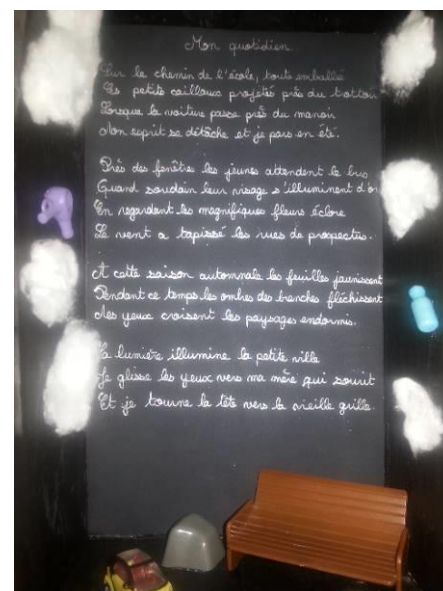 Mon quotidien
Sur le chemin de l'école, toute emballée
Les petits cailloux projetés près du trottoir
Lorsque la voiture passe près du manoir
Mon esprit se détache et je pars en été.
Près des fenêtres les jeunes attendent le bus
Quand soudain leur visage s'illuminent d'or
En regardent les magnifiques fleurs éclore
Le vent a tapissé les rues de prospectus.
A cette saison automnale les feuilles jaunissent
Pendant ce temps les ombres des branches fléchissent
Mes yeux croisent les paysages endormis.
La lumière illumine la petite ville
Je glisse les yeux vers ma mère qui sourit
Et je tourne la tête vers la vieille grille.